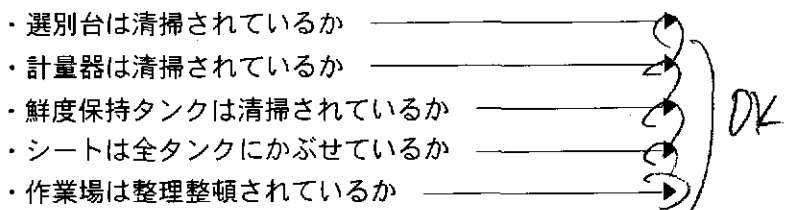 ・選別台は清掃されているか
・計量器は清掃されているか
・鮮度保持タンクは清掃されているか
・シートは全タンクにかぶせているか
・作業場は整理整頓されているか
OK